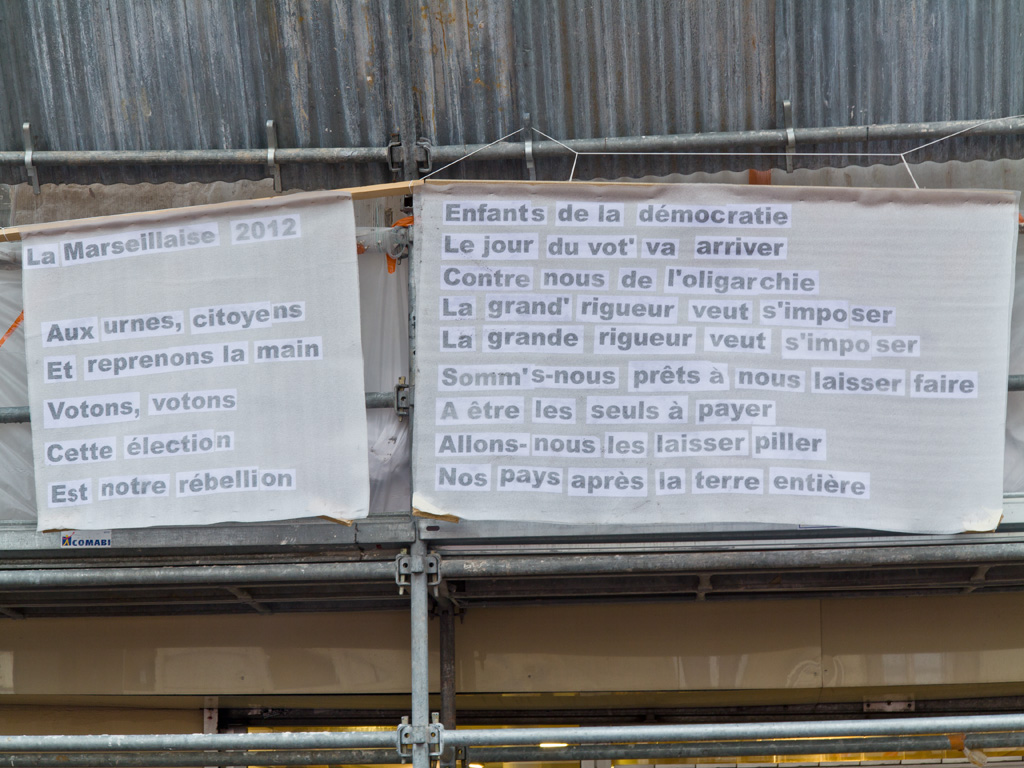 La Marseillaise 2012
Aux urnes, citoyens
Et reprenons la main
Votons, votons
Cette élection
Est notre rébellion
Enfants de la démocratie
Le jour du vot' va arriver
Contre nous de l'oligarchie
La grand' rigueur veut s'imposer
La grande rigueur veut s'imposer
Somm's-nous prêts à nous laisser faire
A être les seuls à payer
Allons-nous les laisser piller
Nos pays après la terre entière
COMABI